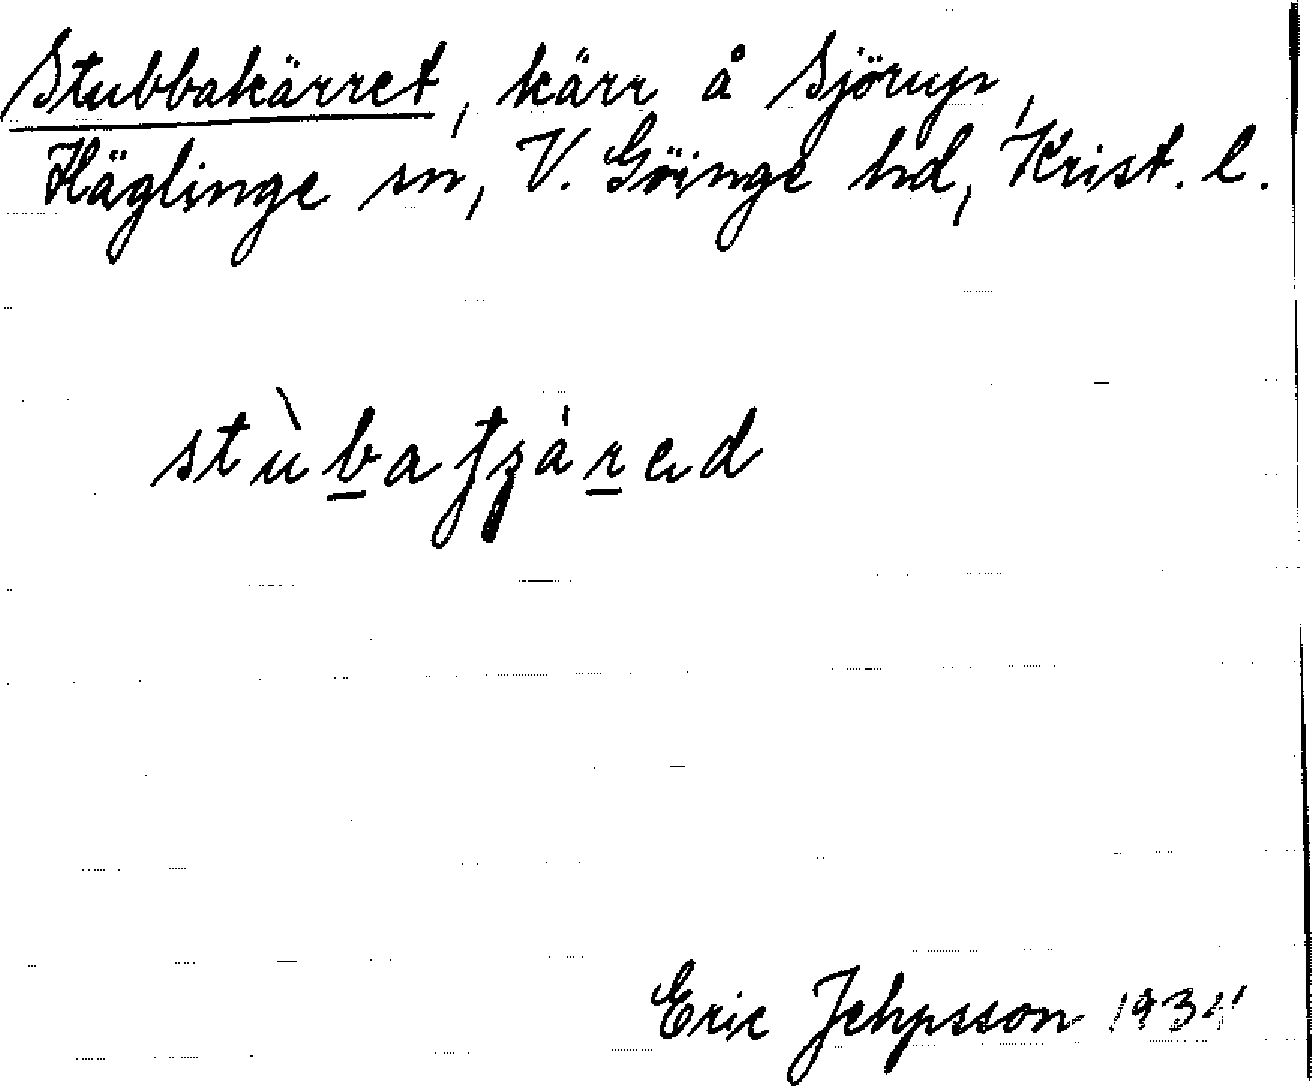 Stubbakärret, kärr å Sjörup,
Häglinge sn, V. Göinge hd, Krist. l.
Eric Jehpsson 1934